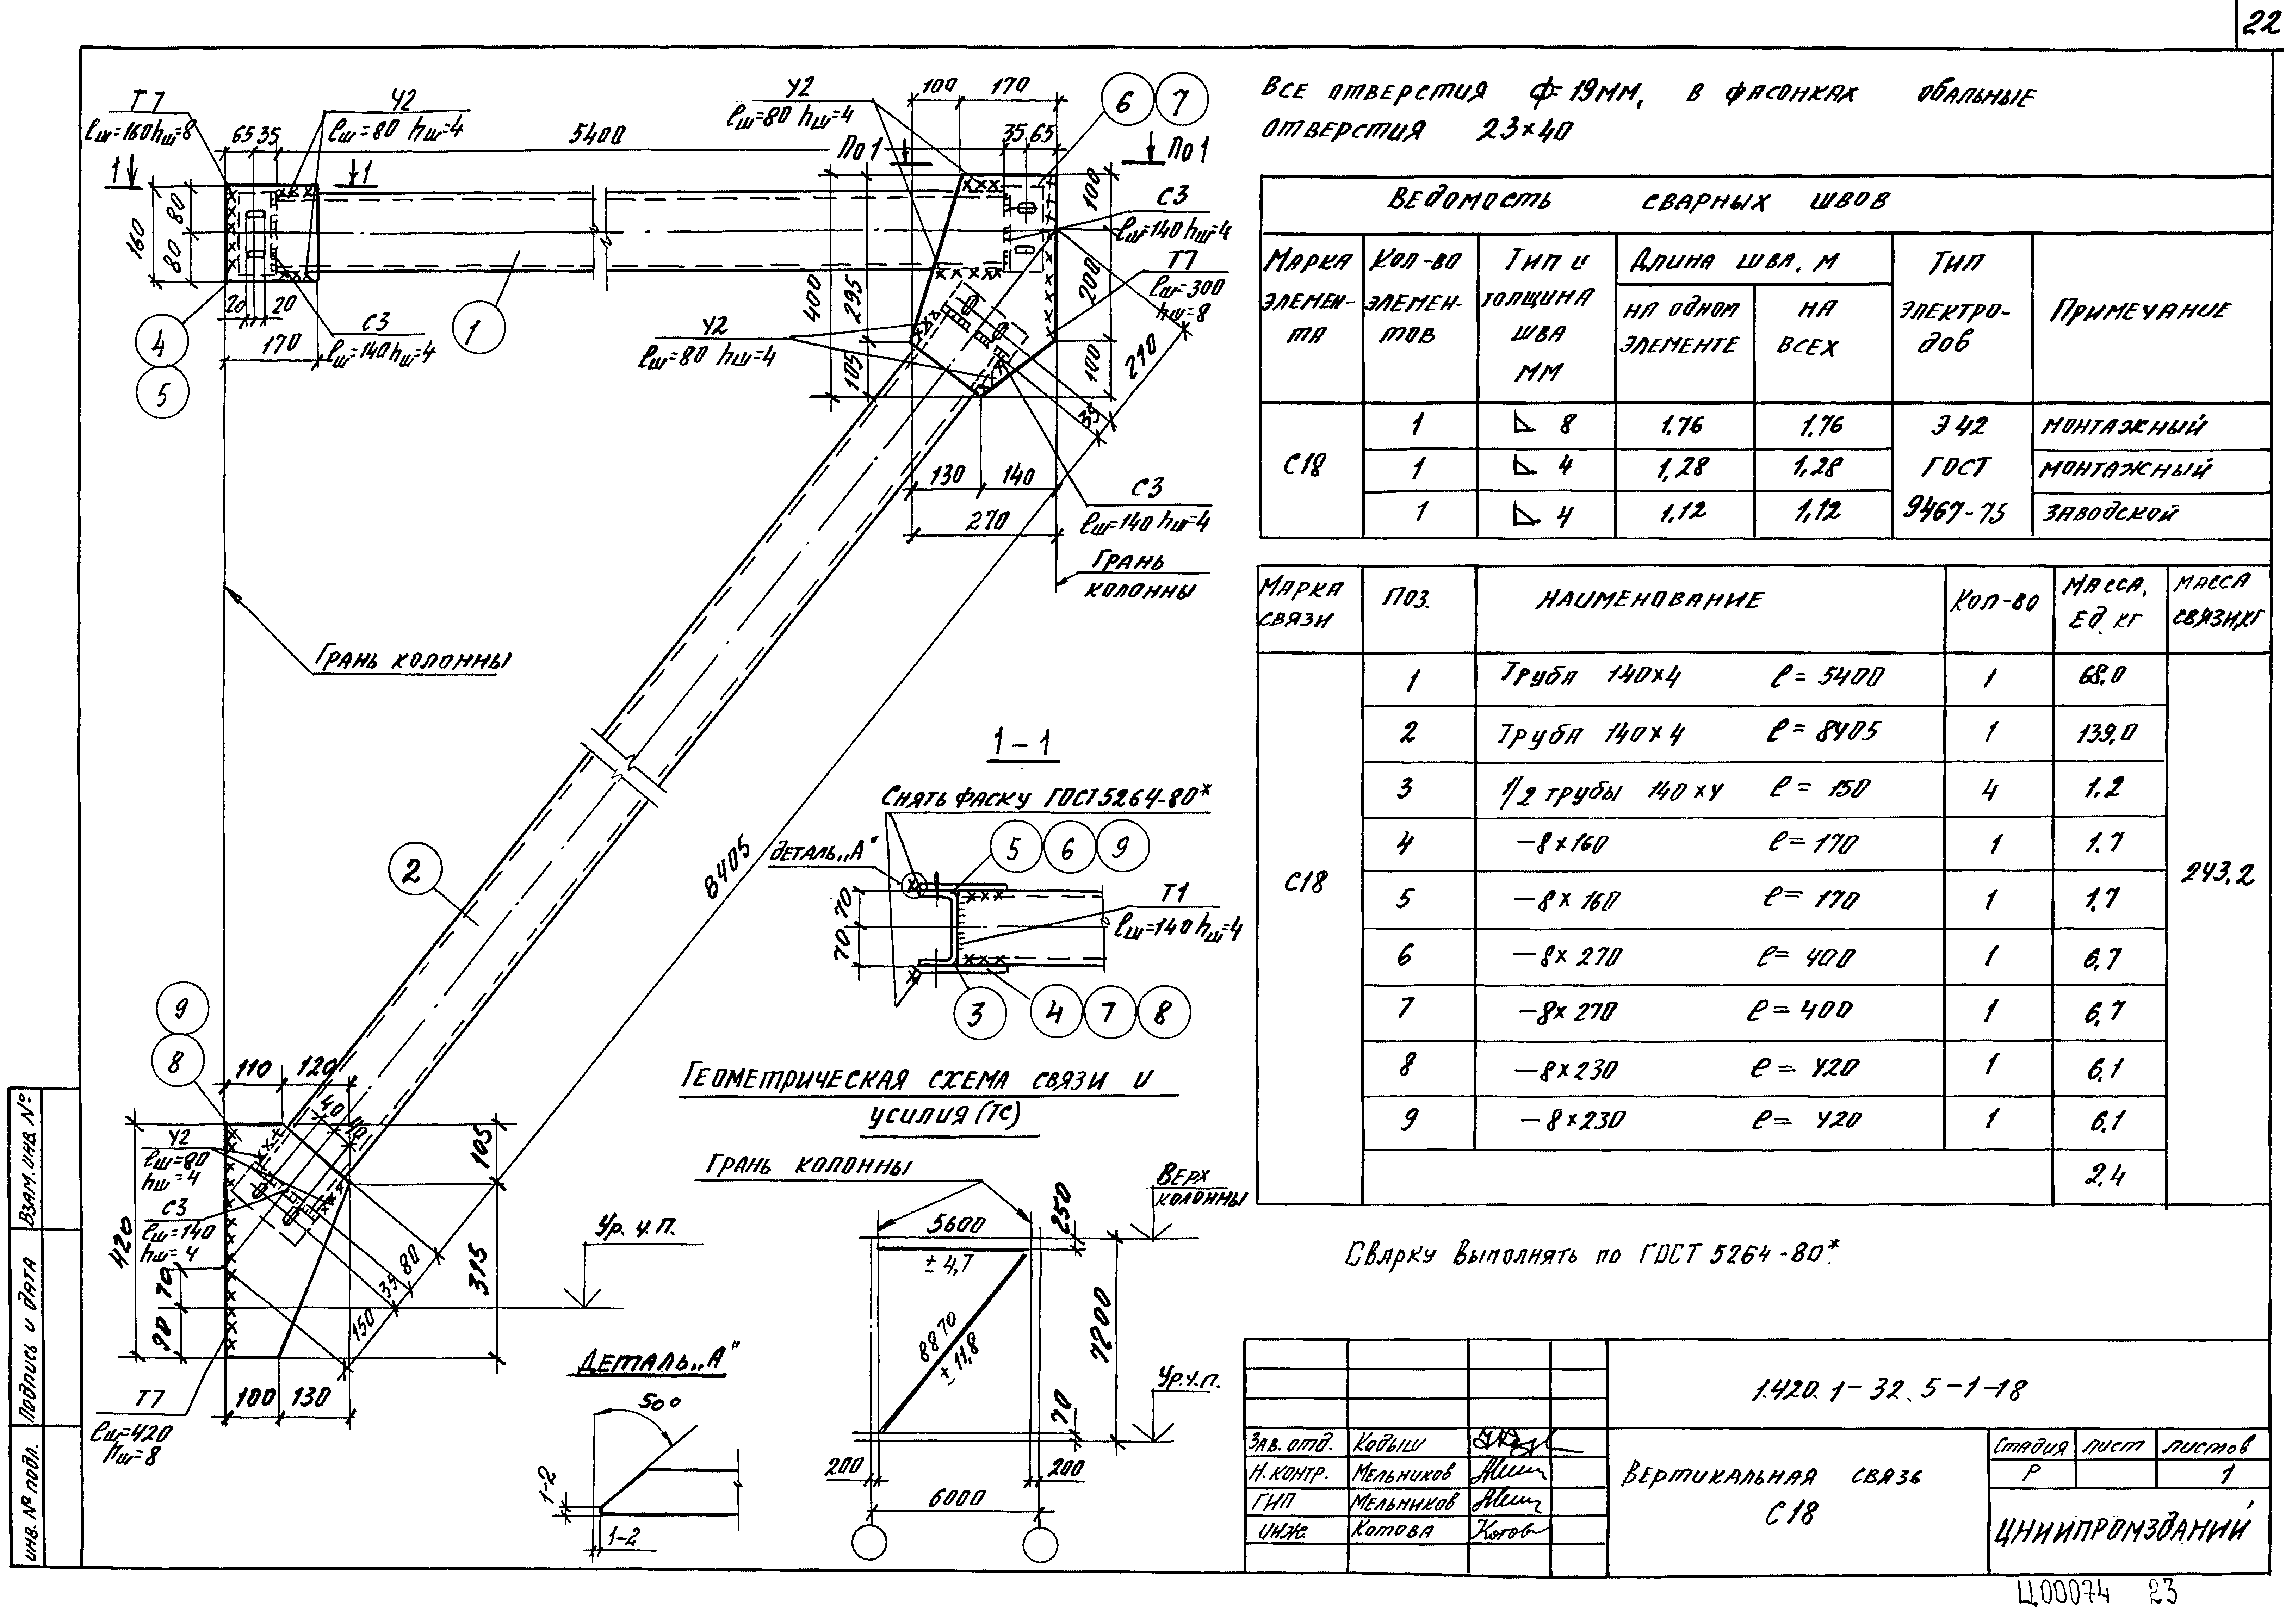 22
Все отверстия ф=19мм, в фасонках овальные
отверстия 23×40
Т7
ℓш=160 hш=8
У2
ℓш=80 hш=4
65 35
5400
1
1
160
80
80
20 20
170
С3
ℓш=140 hш=4
4
5
1
У2
ℓш=80 hш=4
100 170
6 7
35 65
По 1
По 1
С3
ℓш=140 hш=4
Т7
ℓш=300
hш=8
100
200
100
400
295
105
У2
ℓш=80 hш=4
210
35
130 140
270
С3
ℓш=140 hш=4
Грань
колонны
Грань колонны
2
8405
1-1
Снять фаску ГОСТ 5264-80*
Деталь „А"
5 6 9
70
70
Т1
ℓш=140 hш=4
3 4 7 8
9
8
110 120
40
40
У2
ℓш=80
hш=4
С3
ℓш=140
hш=4
420
70
90
105
315
80
35
150
100 130
Т7
ℓш=420
hш=8
Ур. ч.п.
Деталь „А"
50°
1-2
1-2
Геометрическая схема связи и
усилия (тс)
Грань колонны
Верх
колонны
5600
250
±4,7
8870
±11,8
7200
70
Ур.ч.п.
200 200
6000
Ведомость сварных швов
Марка элемен-та
Кол-во элемен-тов
Тип и толщина шва мм
Длина шва, м
на одном элементе
на всех
Тип электро-дов
Примечание
С18
1 8 1.76 1.76 Э42 монтажный
1 4 1.28 1.28 ГОСТ монтажный
1 4 1.12 1.12 9467-75 заводской
Марка связи
Поз.
Наименование
Кол-во
Масса, ед. кг
Масса связи, кг
С18
1 Труба 140×4 ℓ= 5400 1 68,0
2 Труба 140×4 ℓ= 8405 1 139,0
3 1/2 трубы 140×4 ℓ= 150 4 1.2
4 —8×160 ℓ= 170 1 1.7
5 —8×160 ℓ= 170 1 1.7
6 —8×270 ℓ= 400 1 6.7
7 —8×270 ℓ= 400 1 6.7
8 —8×230 ℓ= 420 1 6.1
9 —8×230 ℓ= 420 1 6.1
2.4
243.2
Сварку выполнять по ГОСТ 5264-80*.
1.420.1-32.5-1-18
Зав. отд. Кодыш
Н.контр. Мельников
ГИП Мельников
Инж. Котова
Вертикальная связь
С18
Стадия Лист Листов
Р 1
ЦНИИПРОМЗДАНИЙ
Инв. № подл. Подпись и дата Взам. инв. №
Ц00074 23